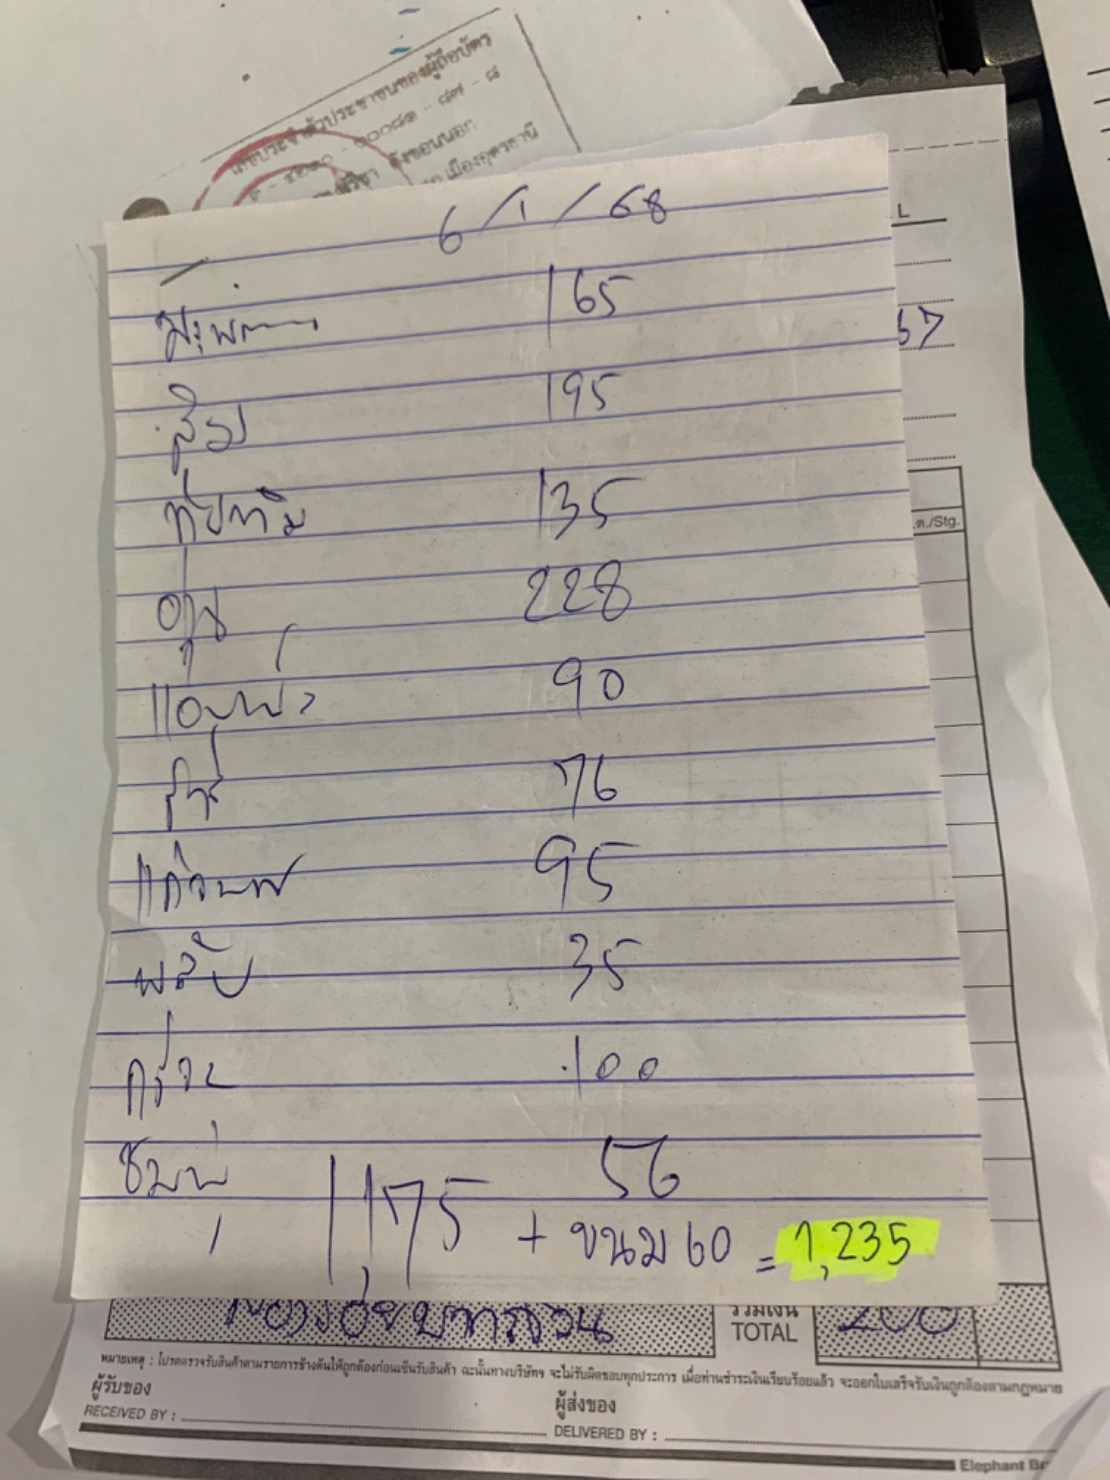 เลขประจำตัวประชาชนของผู้ถือบัตร
เมืองอุดรธานี
6/1/68
L
มะพร้าว 165
67
ส้ม 195
ทับทิม 135
ต.ค./Stg.
องุ่น 228
แอปเปิ้ล 90
สาลี่ 76
แก้วมังกร 95
พลับ 35
กล้วย 100
ชมพู่ 56
1,175 + ขนม 60 = 1,235
รวมเงิน
TOTAL 200
หมายเหตุ : โปรดตรวจรับสินค้าตามรายการข้างต้นให้ถูกต้องก่อนเซ็นรับสินค้า ฉะนั้นทางบริษัทฯ จะไม่รับผิดชอบทุกประการ เมื่อท่านชำระเงินเรียบร้อยแล้ว จะออกใบเสร็จรับเงินถูกต้องตามกฎหมาย
ผู้รับของ
RECEIVED BY :
ผู้ส่งของ
DELIVERED BY :
Elephant